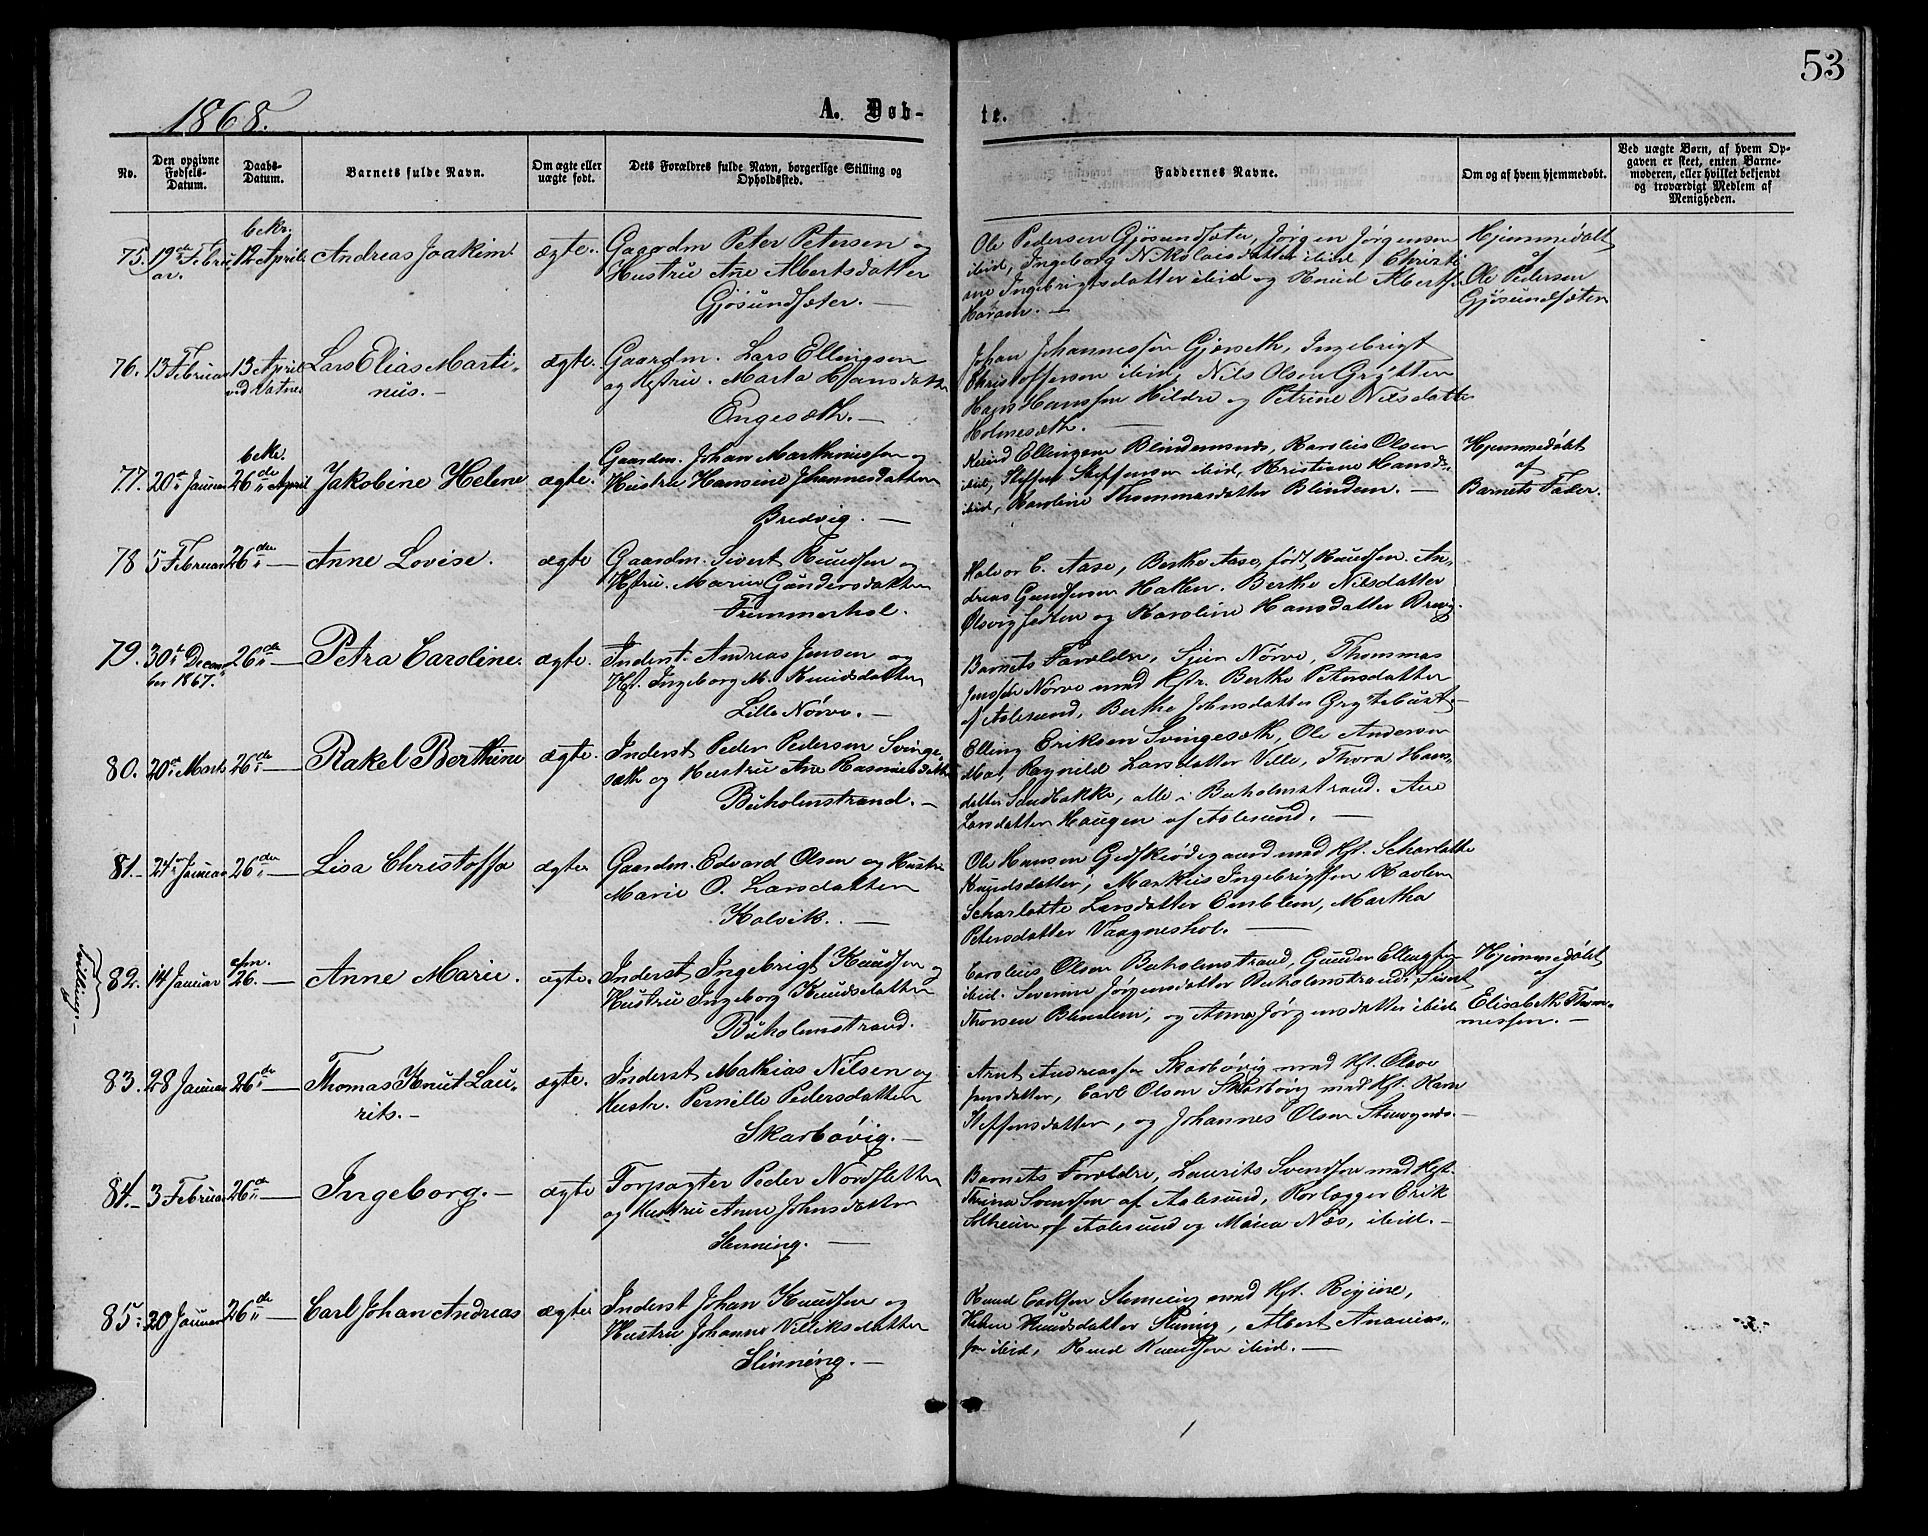 53
1868.
A. Døb-
te.
No.
Den opgivne Fødsels-Datum.
Daabs-Datum.
Barnets fulde Navn.
Om ægte eller uægte født.
Dets Forældres fulde Navn, borgerlige Stilling og Opholdssted.
Faddernes Navne.
Om og af hvem hjemmedøbt.
Ved uægte Børn, af hvem Opgaven er skeet, enten Barnemoderen, eller hvilket bekjendt og troværdigt Medlem af Menigheden.
bekr.
75. 19de Februar. 12 April Andreas Joakim ægte. Peter Petersen og
Hustru Ane Albertsdatter
Gjøsundsæter. —
Ole Pedersen Gjøsundsæter, Jørgen Jørgensen
ibid, Ingeborg Nikolaisdatter ibid Christi
ane Ingebrigtsdatter ibid og Knud Alberts.
Haram. —
Hjemmedøbt
af
Ole Pedersen
Gjøsundsæter
76. 13 Februar 13 April vid Vatne Lars Elias Marti-
nus. —
ægte. Gaardm. Lars Ellingsen
og Hstru. Marta Hansdatter
Engesæth. —
Johan Johannessen Gjærseth, Ingebrigt
Christoffersen ibid, Nils Olsen Grytten
Hans Hanssen Hildre og Petrine Nilsdatter
Holmesæth. —
bekr.
77. 20de Januar 26de April Jakobine Helene ægte. Gaardm. Johan Marthinussen og
Hustru Hansine Johannesdatter
Bredvig. —
Knud Ellingsen Blindemsnæs, Karolius Olsen
ibid, Steffen Steffensen ibid, Kristiane Hansd.
ibid, Karoline Thommasdatter Blindem. —
Hjemmedøbt
af
Barnets Fader.
78 5 Februar 26de — Anne Lovise. ægte Gaardm. Sivert Knudsen og
Hstru. Marie Gundersdatter
Fremmerhol.
Halvor C. Aase, Berthe Aase, født Knudsen. An-
dreas Gundersen Hatlen. Berthe Nilsdatter
og Karoline Hansdatter
79. 30te Decem-
ber 1867. 26de — Petra Caroline. ægte. Inderst. Andreas Jensen og
Hst. Ingeborg M. Knudsdatter
Lille Nørve. —
Barnets Forældre, Sjur Nørve, Thommas
Jenssen Nørve med Hstr. Berthe Petersdatter
af Aalesund, Berthe Johnsdatter Grytebust —
80. 20de Marts 26de — Rakel Berthine ægte. Inderst Peder Pedersen Svinge-
sæth og Hustru Ane Rasmusdatter
Buholmstrand. —
Elling Eriksen Svingesæth, Ole Andersen
Moe, Ragnild Larsdatter Ville, Thora Hans-
datter Sandbakke, alle i Buholmstrand. Ane
Larsdatter Haugen af Aalesund. —
81. — 24de Januar 26de — Lisa Christoffa ægte Gaardm. Edvard Olsen og Hustru
Marie O. Larsdatter
Kalvik. —
Ole Hansen Gidskeødegaard med Hst. Scharlotte
Knudsdatter, Markus Ingebrigtsen Kavlen
Scharlotte Larsdatter Emblem, Martha
Petersdatter Vaagneshol. —
Tvilling. —
82. 14 Januar efm. 26. — Anne Marie. ægte. Inderst Ingebrigt Knudsen og
Hustru Ingeborg Knudsdatter
Buholmstrand.
Carolius Olsen Buholmstrand, Gunder Ellingsen
ibid. Severine Jørgensdatter Buholmstrand, Sivert
Thorsen Blindem, og Anna Jørgensdatter ibid.
Hjemmedøbt
af
Elisabeth Thom-
messen. —
83. 28 Januar 26de — Thomas Knut Lau-
rits. —
ægte. Inderst Mathias Nilsen og
Hustr. Pernille Pedersdatter
Skarbøvig. —
Arnt Andreassen Skarbøvig med Hst. Olave
Jensdatter, Carl Olsen Skarbøvig med Hst. Karn
Steffensdatter, og Johannes Olsen
84. — 3 Februar 26de — Ingeborg. — ægte Forpagter Peder Nordsletten
og Hustru Anne Johnsdatter
Slinning. —
Barnets Forældre, Laurits Svendsen med Hst.
Thrina Svendsen af Aalesund, Rorlægger Erik
Solheim af Aalesund og Maria Næs, ibid. —
85. 20 Januar 26de — Carl Johan Andreas ægte Inderst Johan Knudsen og
Hustru Johanne Nilliksdatter
Slinning. —
Knud Carlsen Slinning med Hst. Regine,
Helene Knudsdatter Slinning, Albert Ananias-
sen ibid, Knud Knudsen ibid. —